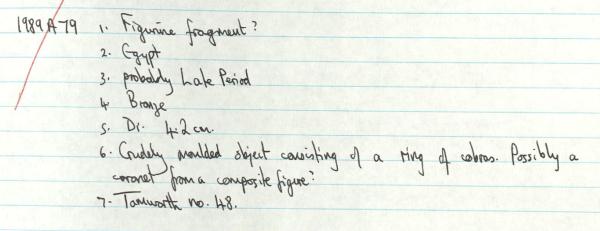 1989A79 1. Figurine fragment?
2. Egypt
3. probably Late Period
4. Bronze
5. Di. 4.2 cm.
6. Crudely moulded object consisting of a ring of cobras. Possibly a
coronet from a composite figure?
7. Tamworth no. 48.